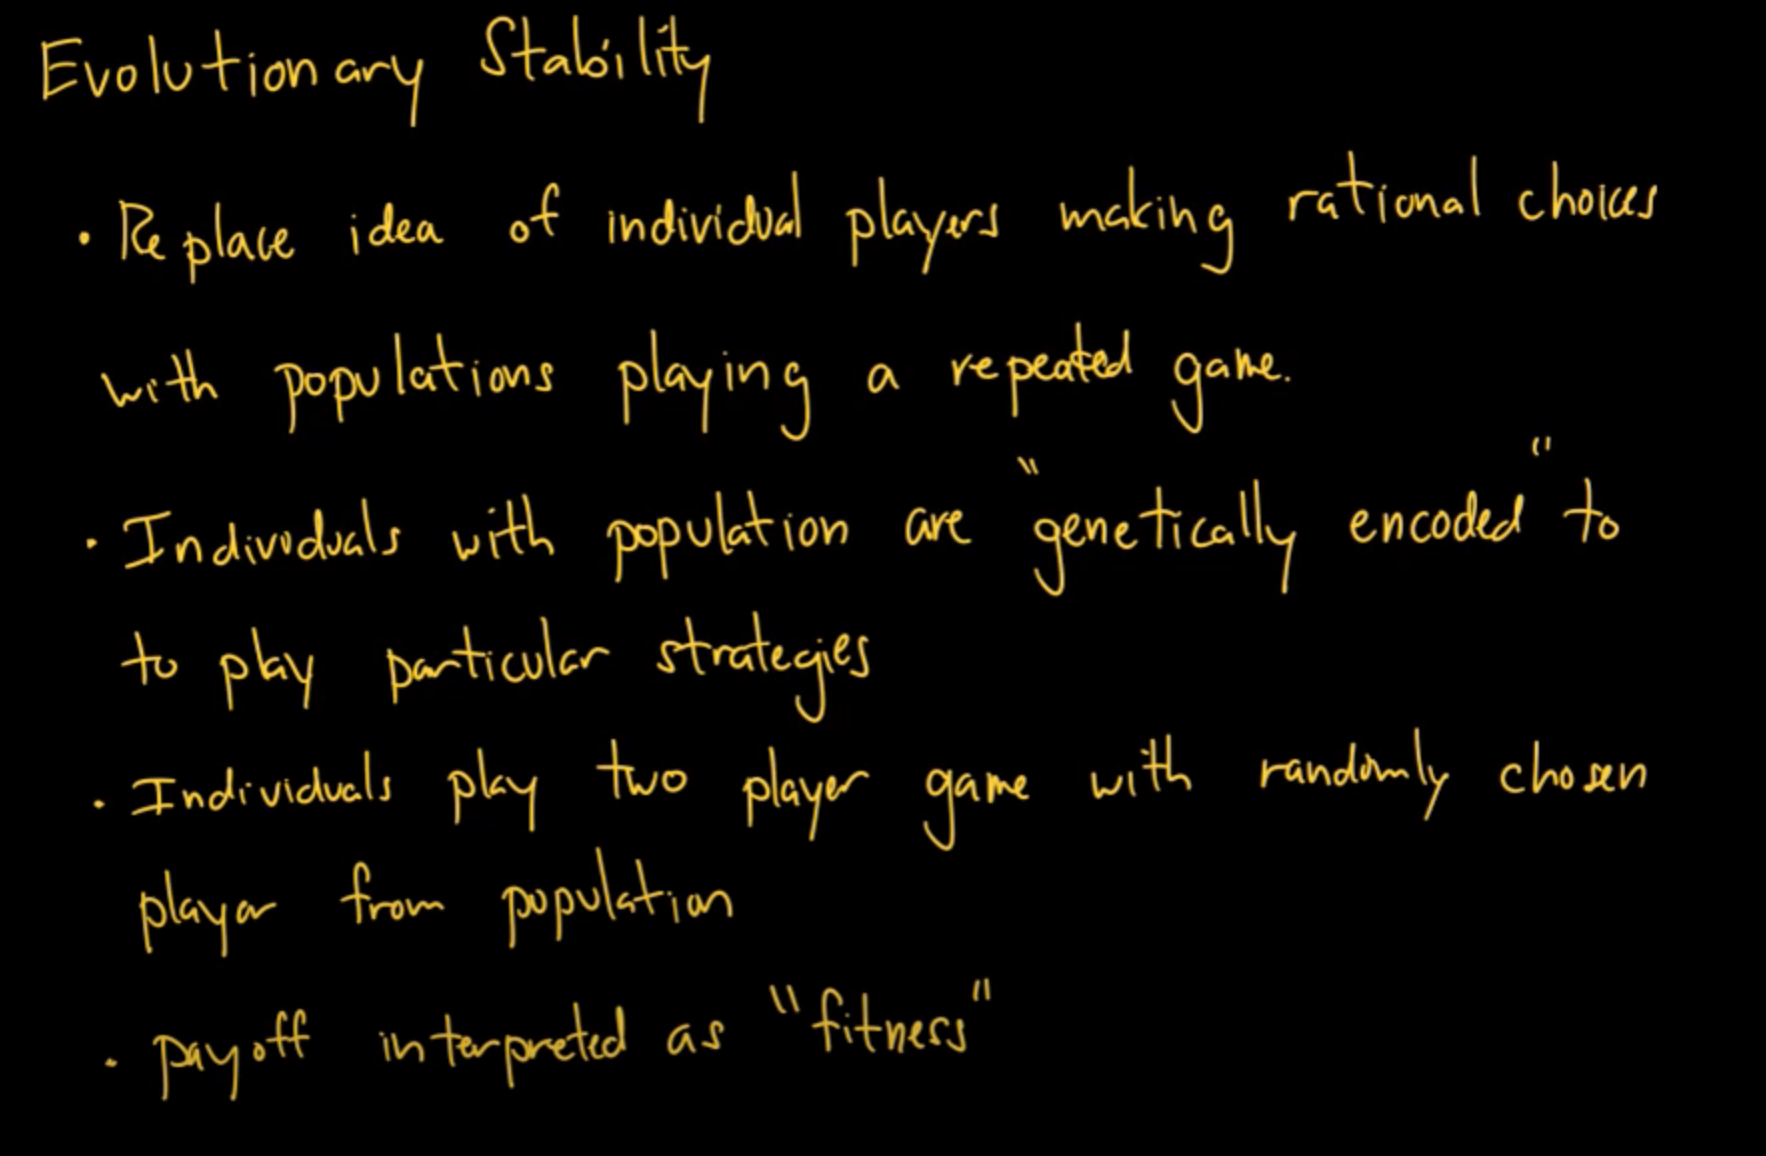 Evolutionary Stability
• Replace idea of individual players making rational choices
with populations playing a repeated game.
• Individuals with population are "genetically encoded" to
to play particular strategies
• Individuals play two player game with randomly chosen
player from population
• payoff interpreted as "fitness"